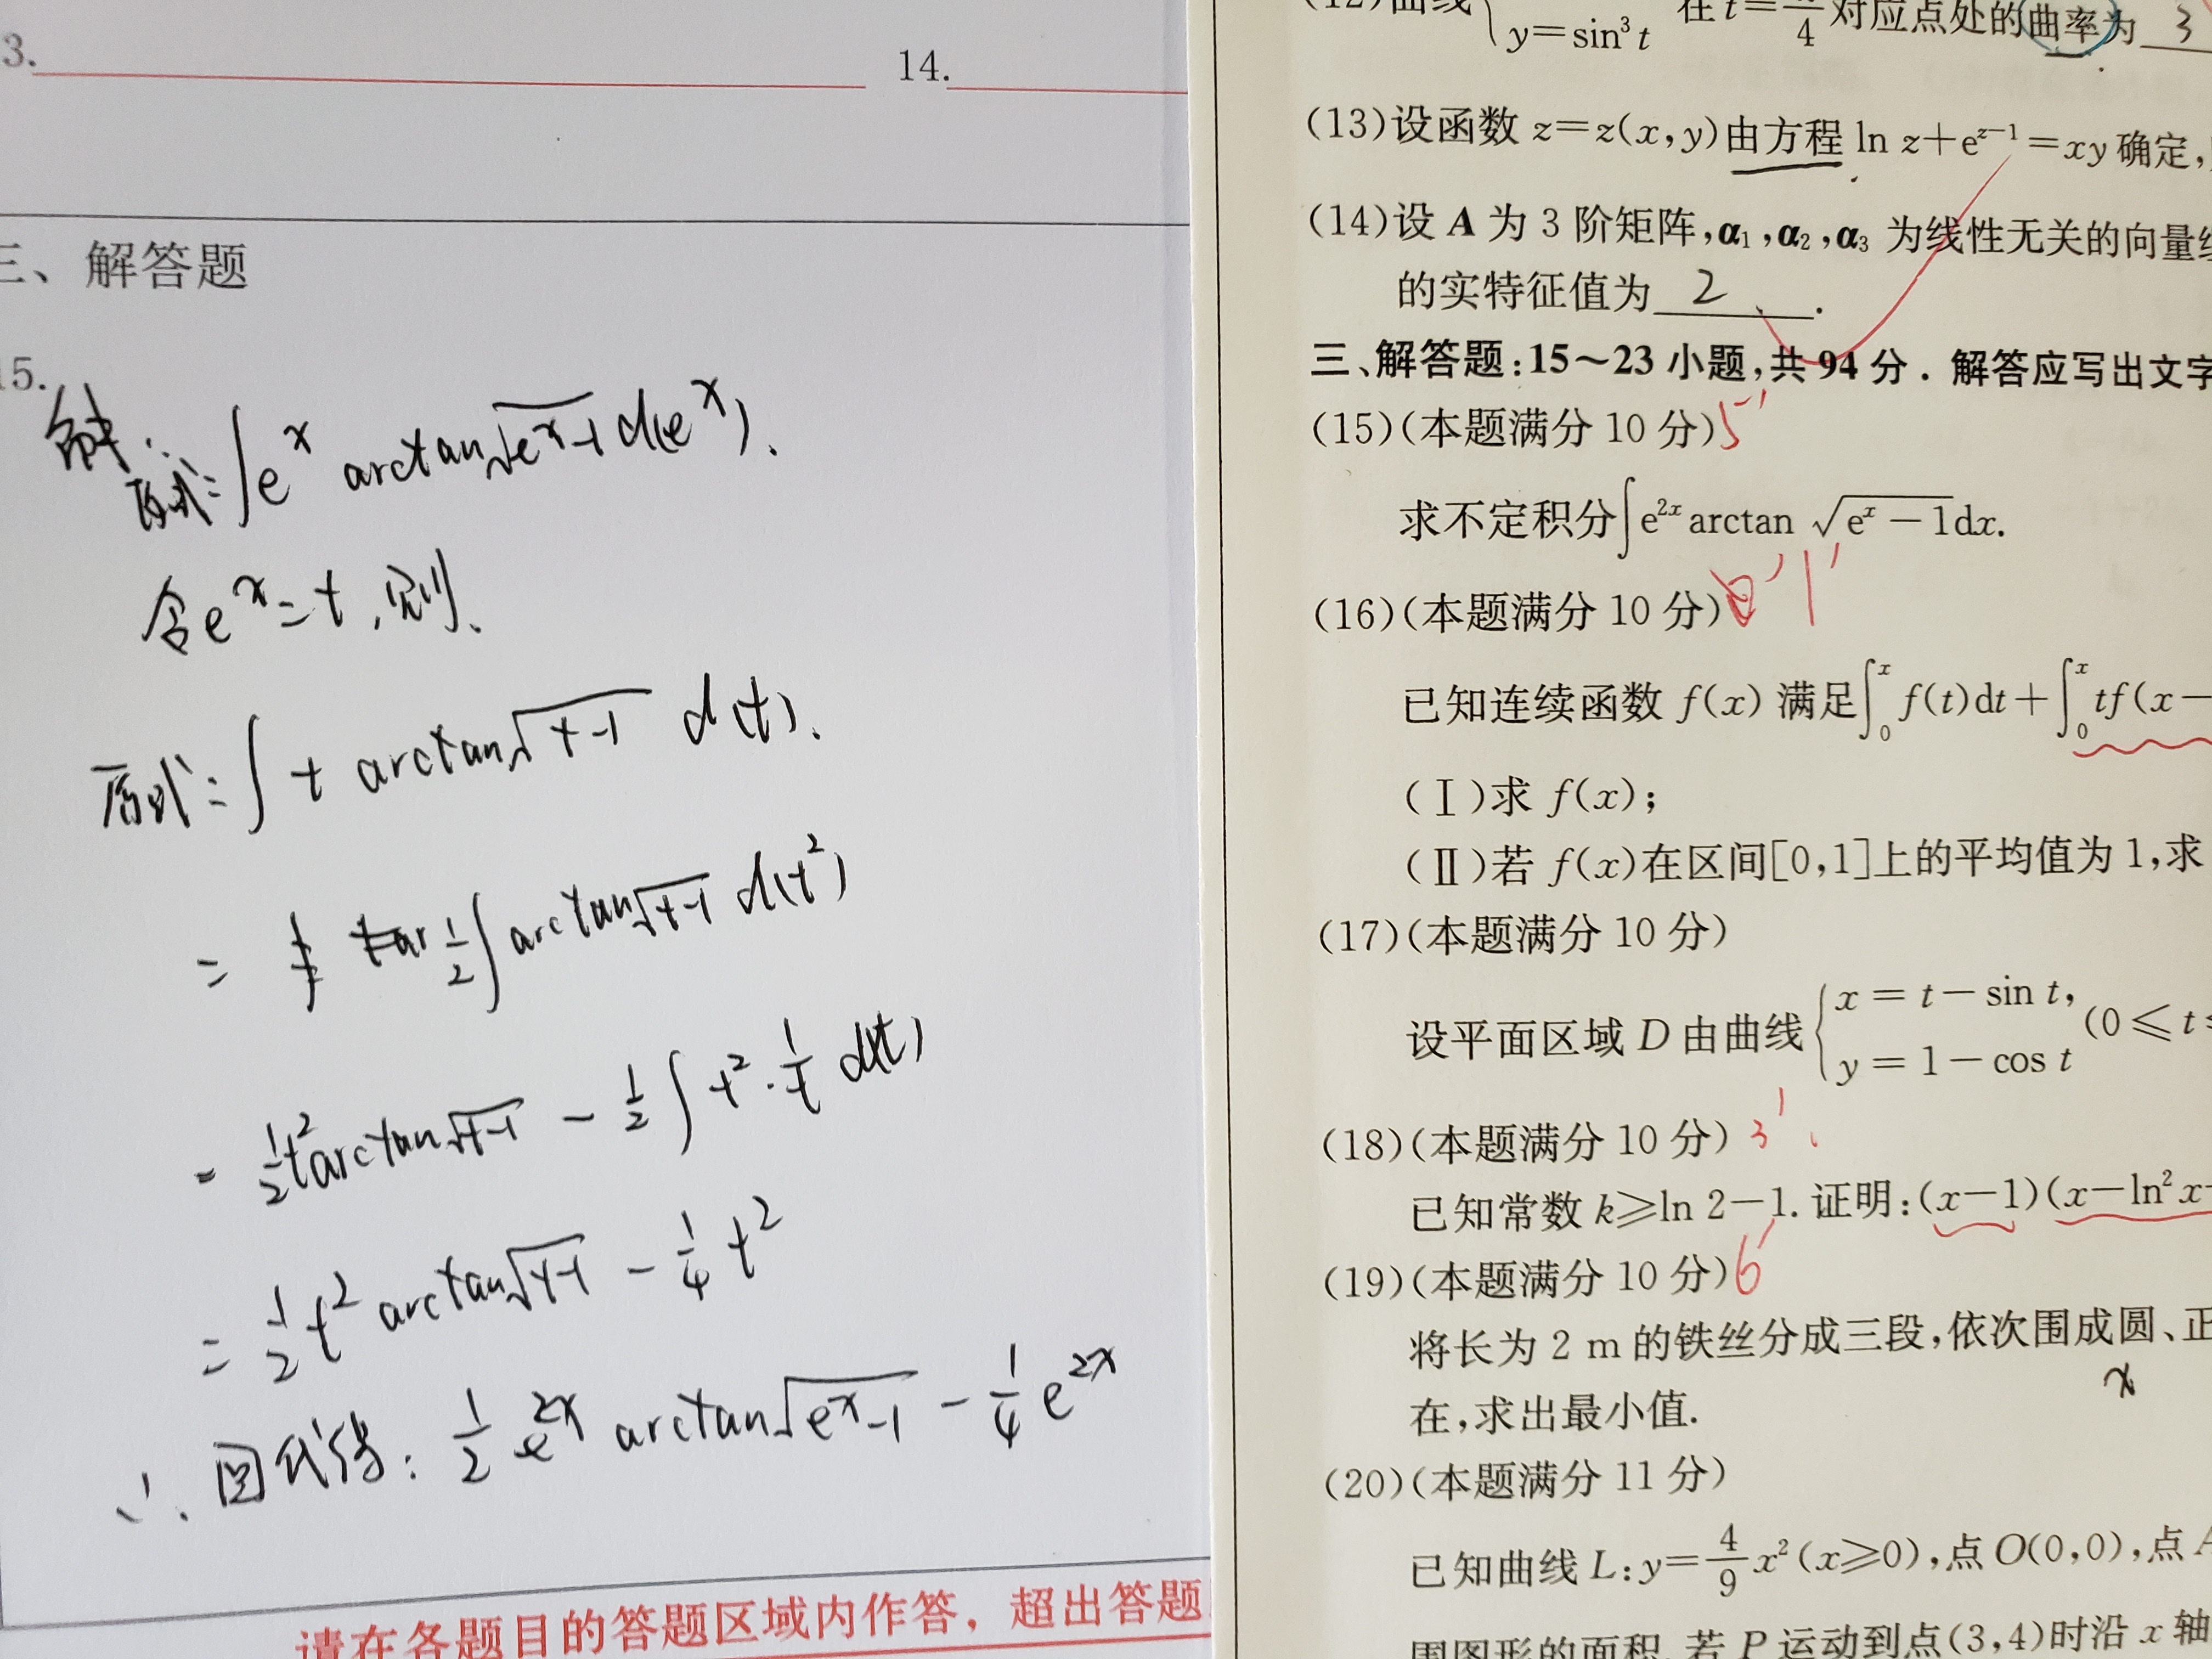 3.
14.
三、解答题
15.
解:
原式=∫e^x arctan√(e^x-1) d(e^x).
令e^x=t,则.
原式=∫t arctan√(t-1) d(t).
= 1/2∫arctan√(t-1) d(t²)
= 1/2 t² arctan√(t-1) - 1/2∫t²·1/t d(t)
= 1/2 t² arctan√(t-1) - 1/4 t²
∴回代得: 1/2 e^2x arctan√(e^x-1) - 1/4 e^2x
请在各题目的答题区域内作答，超出答题
(12)曲线{ y=sin³t 在t=π/4对应点处的曲率为 3
(13)设函数 z=z(x,y)由方程 ln z+e^(z-1)=xy 确定,
(14)设 A 为 3 阶矩阵,α₁,α₂,α₃ 为线性无关的向量组
的实特征值为 2 .
三、解答题:15~23 小题,共 94 分. 解答应写出文字
(15)(本题满分 10 分) 5'
求不定积分∫e^2x arctan √(e^x-1)dx.
(16)(本题满分 10 分) 1'
已知连续函数 f(x) 满足∫₀^x f(t)dt+∫₀^x tf(x-
(Ⅰ)求 f(x);
(Ⅱ)若 f(x)在区间[0,1]上的平均值为 1,求
(17)(本题满分 10 分)
设平面区域 D 由曲线{x=t-sin t, y=1-cos t (0≤t≤
(18)(本题满分 10 分) 3'
已知常数 k≥ln 2-1. 证明:(x-1)(x-ln²x
(19)(本题满分 10 分) 6'
将长为 2 m 的铁丝分成三段,依次围成圆、正
x
在,求出最小值.
(20)(本题满分 11 分)
已知曲线 L:y=4/9 x²(x≥0),点 O(0,0),点 A
围图形的面积.若 P 运动到点(3,4)时沿 x 轴